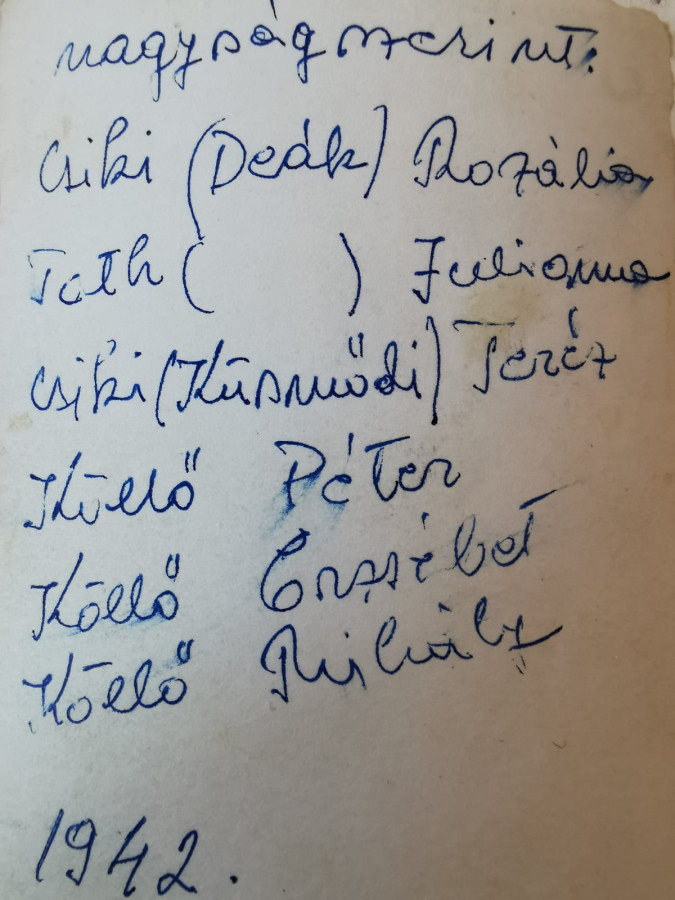 nagyság szerint.
Csiki (Deák) Rozália
Toth ( ) Julianna
Csiki (Küsmődi) Teréz
Köllő Péter
Köllő Erzsébet
Köllő Mihály
1942.